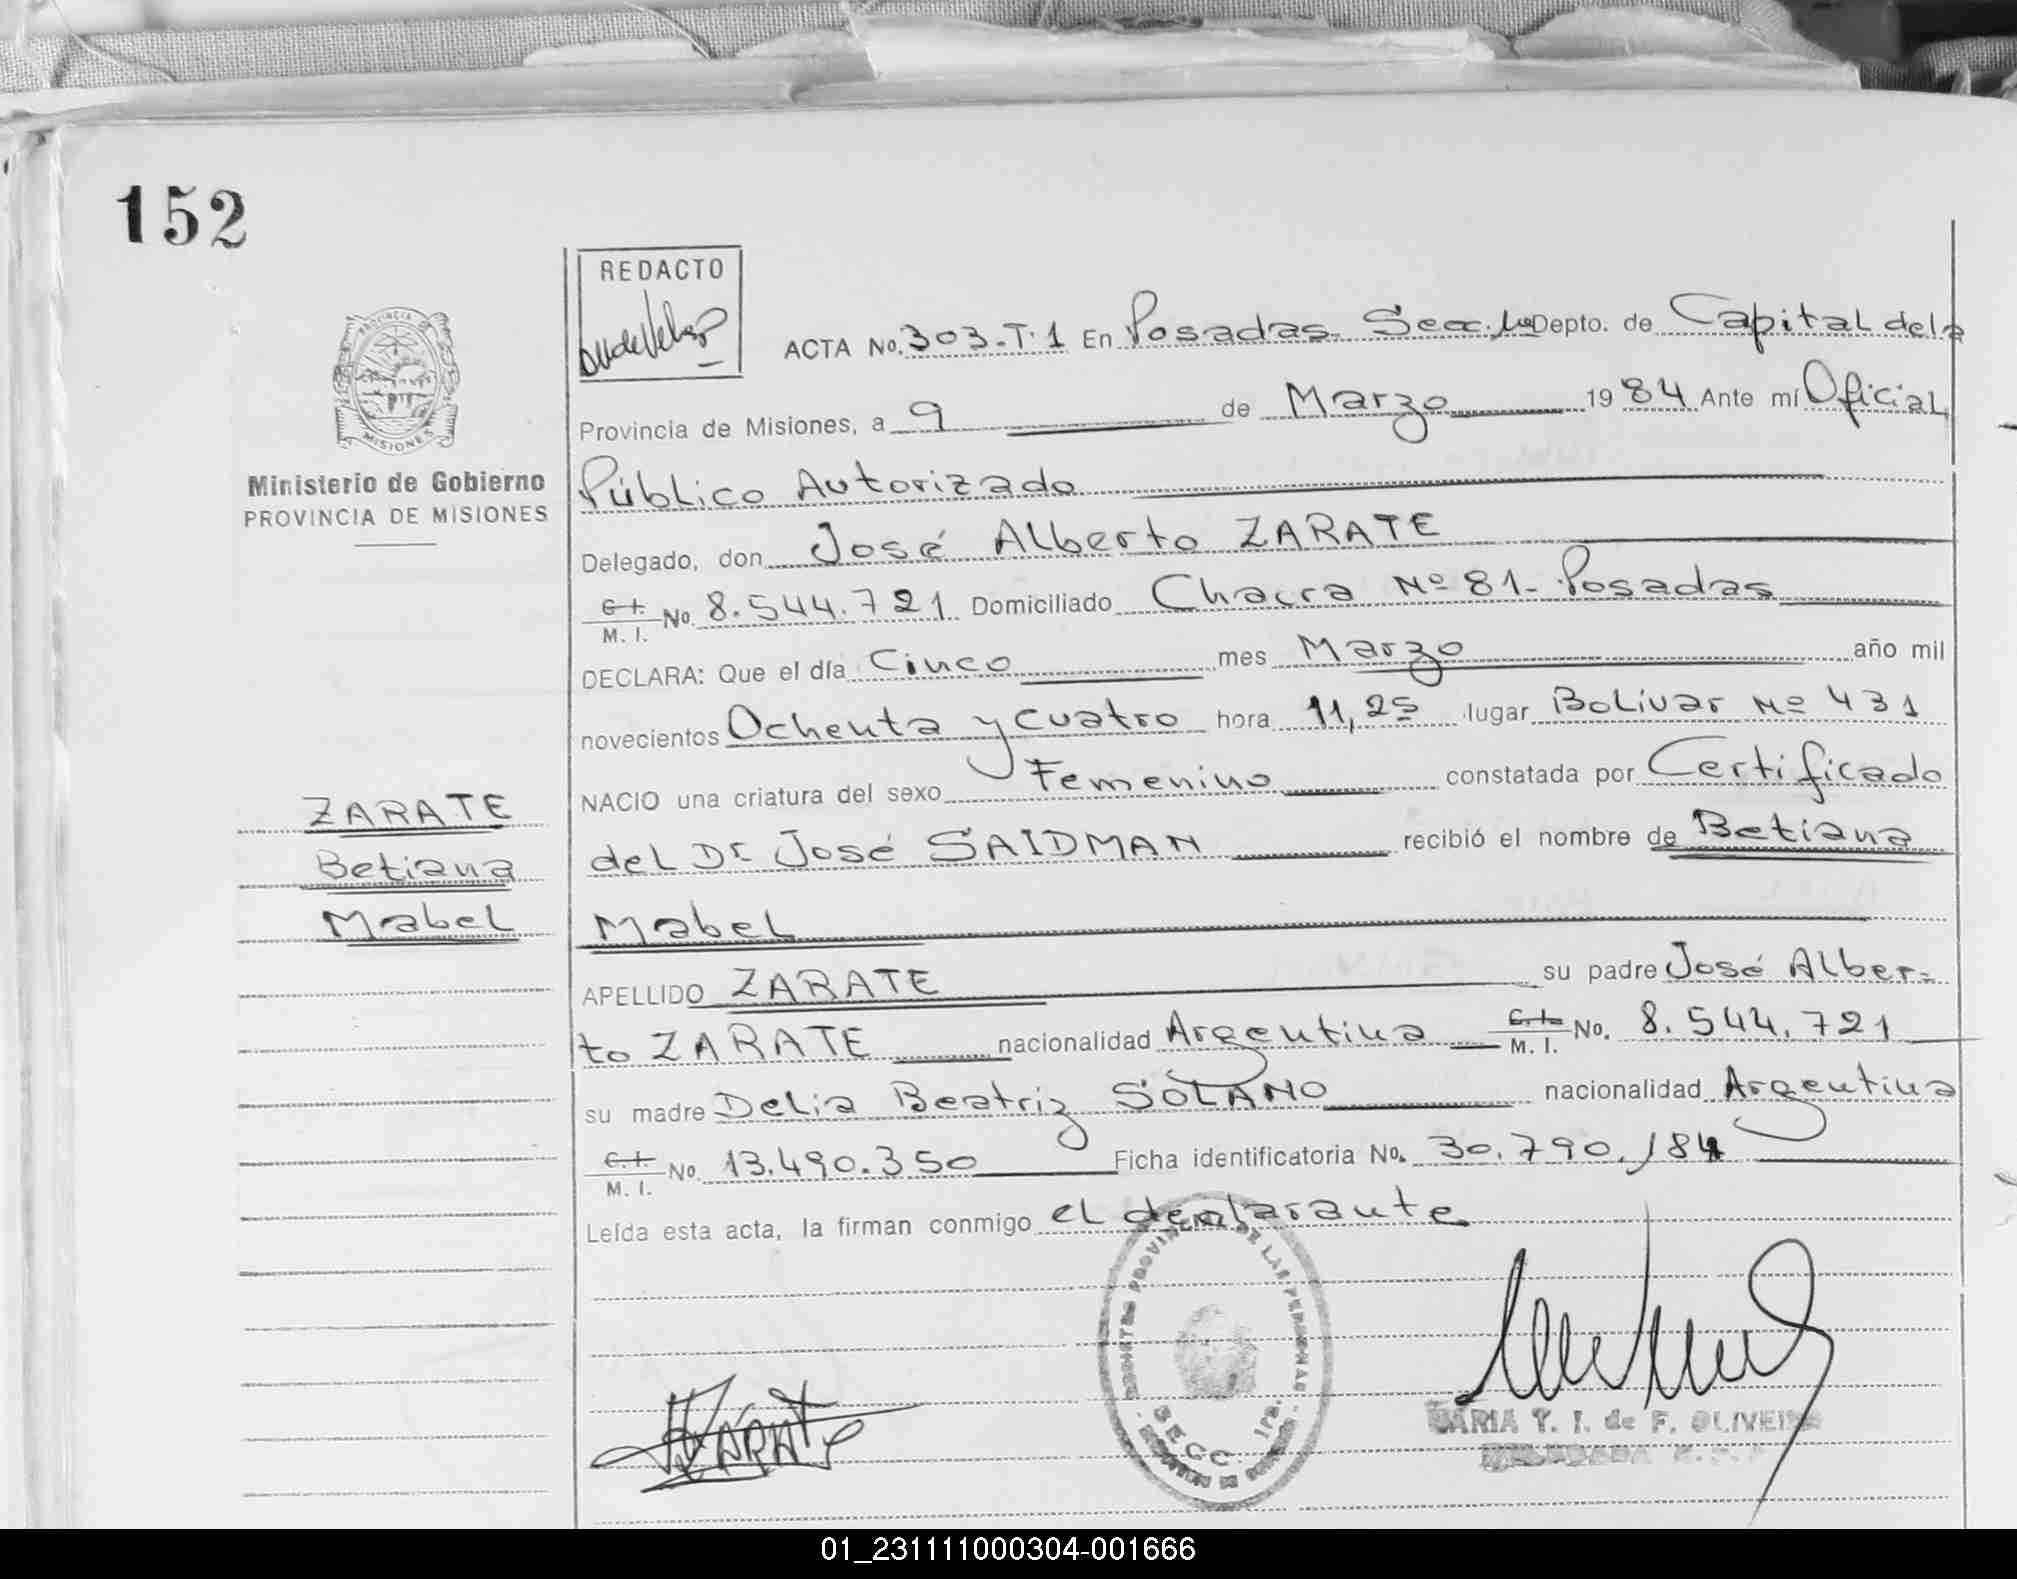 152
REDACTO
PROVINCIA DE
MISIONES
Ministerio de Gobierno
PROVINCIA DE MISIONES
ACTA No. 303-T.1 En Posadas Secc. 1a Depto. de Capital de la
Provincia de Misiones, a 9 de Marzo 1984 Ante mí Oficial
Público Autorizado
Delegado, don José Alberto ZARATE
C.I. M.I. No. 8.544.721 Domiciliado Chacra Nº 81- Posadas
DECLARA: Que el día Cinco mes Marzo año mil
novecientos Ochenta y cuatro hora 11,25 lugar Bolivar Nº 431
NACIO una criatura del sexo Femenino constatada por Certificado
del Dr José SAIDMAN recibió el nombre de Betiana
Mabel
APELLIDO ZARATE su padre José Alber-
to ZARATE nacionalidad Argentina C.I. M.I. No. 8.544.721
su madre Delia Beatriz SOLANO nacionalidad Argentina
C.I. M.I. No. 13.490.350 Ficha identificatoria No. 30.790./84
Leída esta acta, la firman conmigo el declarante
ZARATE
Betiana
Mabel
ZARATE
DE LAS PERSONAS
SECC. 1ra.
MARIA T. I. de F. OLIVEIRA
01_231111000304-001666